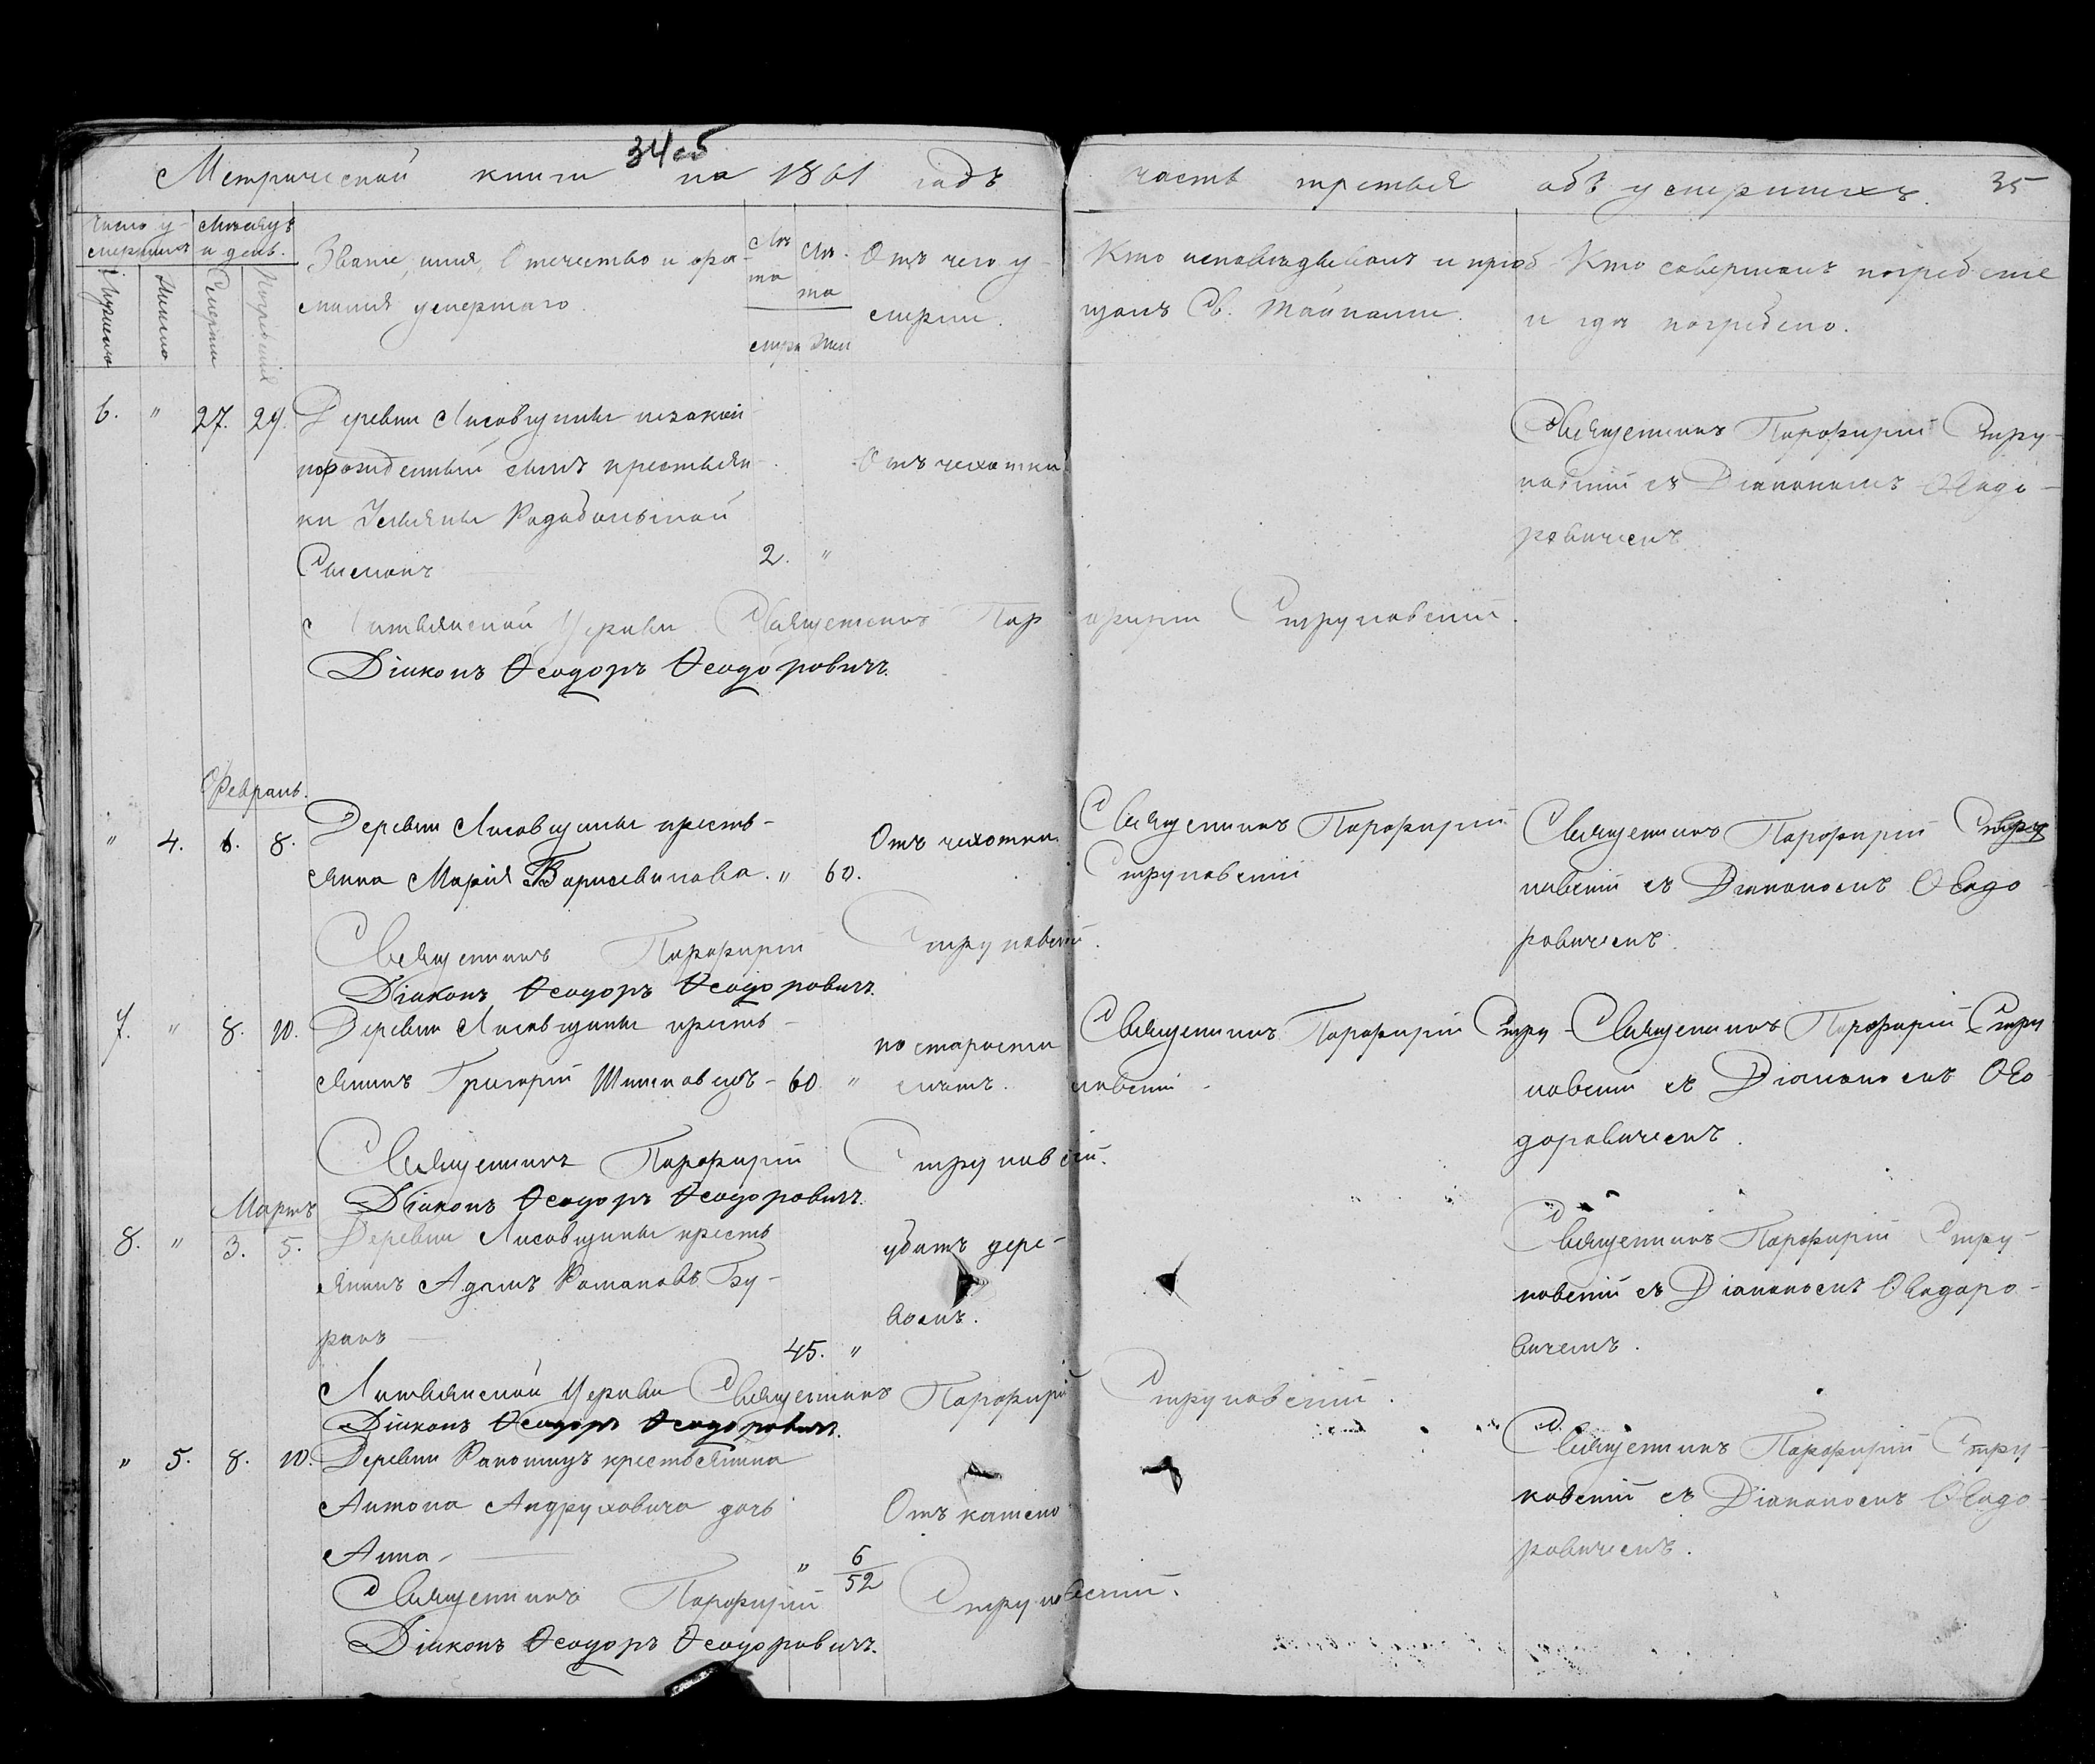 34об
Метрической книги на 1861 годъ часть третья объ умершихъ. 35
Число умершихъ
Мѣсяцъ и день.
Мужеска
Женска
Смерти
Погребенія
Званіе, имя, Отечество и фамилія умершаго.
Лѣта
Лѣта
Отъ чего умерли.
Кто исповѣдывалъ и пріобщалъ Св. Тайнами.
Кто совершалъ погребеніе и гдѣ погребено.
6. " 27. 29. Деревни Лисовщины незакон-
норожденный сынъ крестьян-
ки Ульяны
Симеонъ 2. "
Отъ чахотки
Священникъ Порфирій Стру-
ковскій съ Діакономъ Ѳеодо-
ровичемъ
Литвянской Церкви Священникъ Порфирій Струковскій.
Діаконъ Ѳеодоръ Ѳеодоровичъ.
Февраль.
" 4. 6. 8. Деревни Лисовщины кресть-
янка Марія " 60.
Отъ чахотки
Священникъ Порфирій
Струковскій
Священникъ Порфирій Стру
ковскій съ Діакономъ Ѳеодо-
ровичемъ.
Священникъ Порфирій Струковскій.
Діаконъ Ѳеодоръ Ѳеодоровичъ.
7. " 8. 10. Деревни Лисовщины кресть-
янинъ Григорій 60. "
по старости
лѣтъ.
Священникъ Порфирій Стру-
ковскій
Священникъ Порфирій Стру
ковскій съ Діакономъ Ѳео-
доровичемъ.
Священникъ Порфирій Струковскій.
Діаконъ Ѳеодоръ Ѳеодоровичъ.
Мартъ
8. " 3. 5. Деревни Лисовщины кресть
янинъ Адамъ Романовъ Бу-
ракъ 45. "
убитъ дере-
вомъ.
Священникъ Порфирій Стру-
ковскій съ Діакономъ Ѳеодоро-
вичемъ.
Литвянской Церкви Священникъ Порфирій Струковскій.
Діаконъ Ѳеодоръ Ѳеодоровичъ.
" 5. 8. 10. Деревни крестьянина
Антона Андруховича дочь
Анна " 6/52
Отъ
Священникъ Порфирій Стру-
ковскій съ Діакономъ Ѳеодо-
ровичемъ.
Священникъ Порфирій Струковскій.
Діаконъ Ѳеодоръ Ѳеодоровичъ.